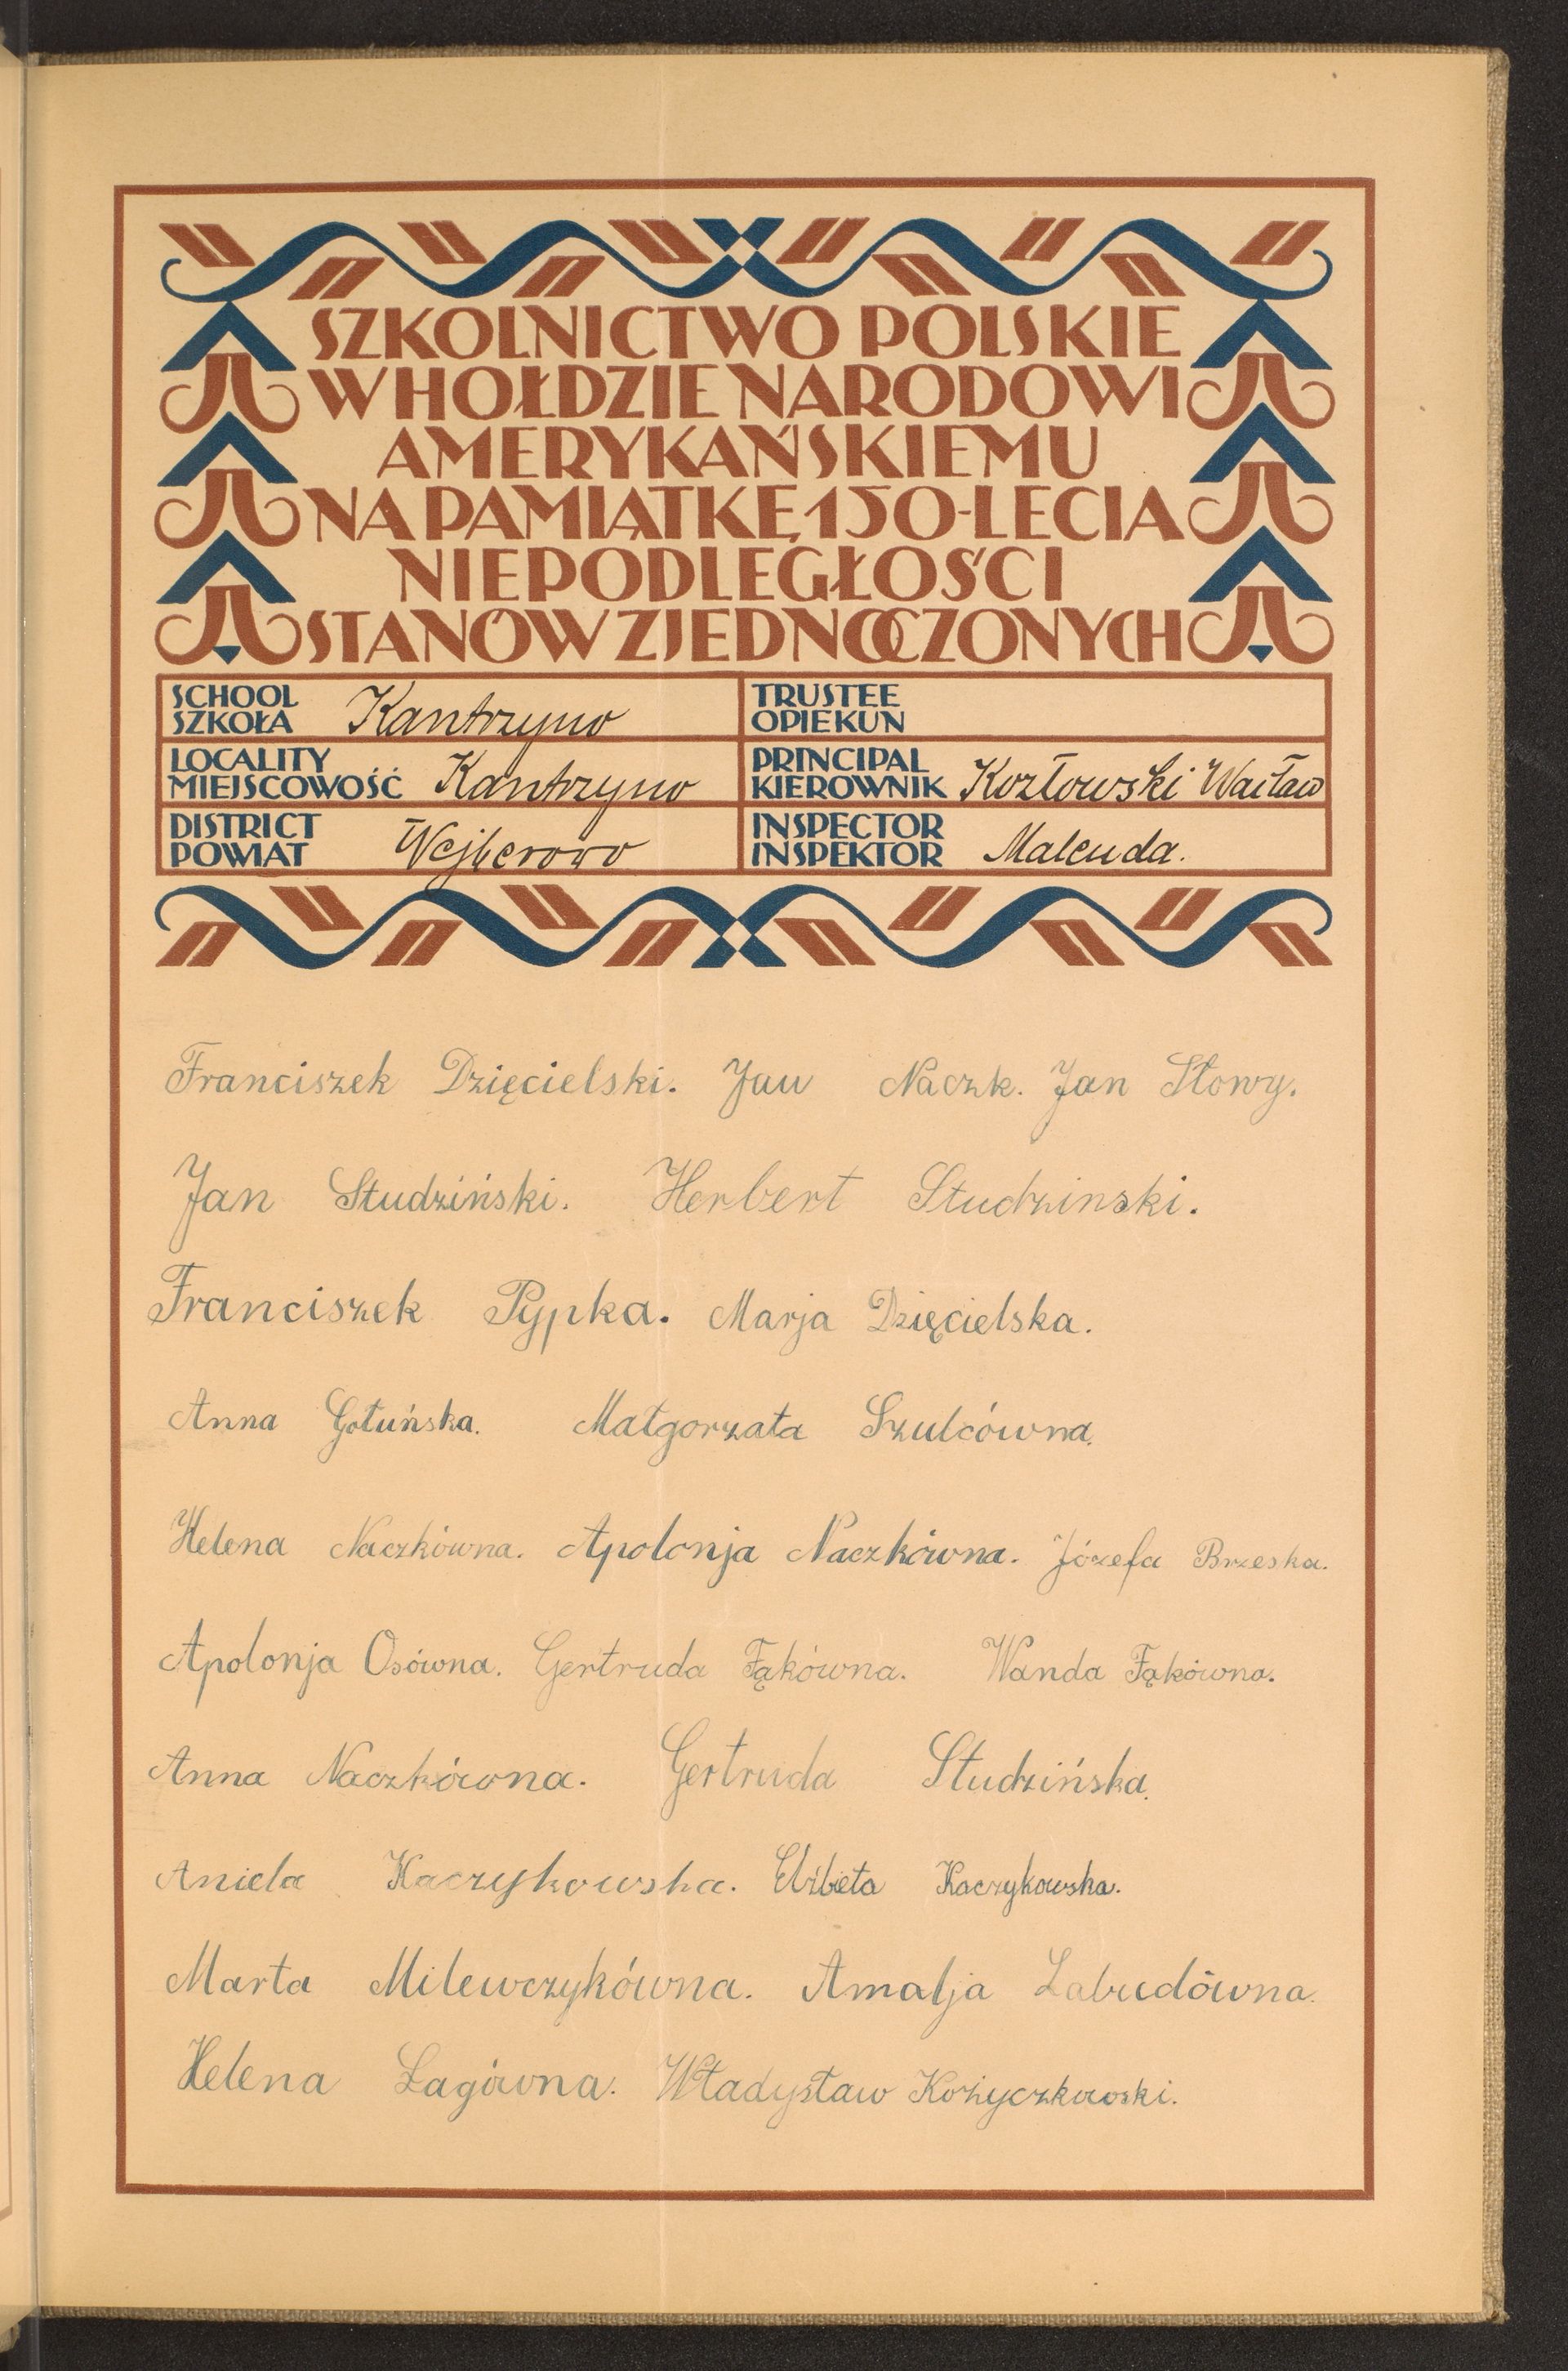 SZKOLNICTWO POLSKIE
W HOŁDZIE NARODOWI
AMERYKAŃSKIEMU
NA PAMIĄTKĘ 150-LECIA
NIEPODLEGŁOŚCI
STANÓW ZJEDNOCZONYCH
SCHOOL
SZKOŁA Kantrzyno
TRUSTEE
OPIEKUN
LOCALITY
MIEJSCOWOŚĆ Kantrzyno
PRINCIPAL
KIEROWNIK Kozłowski Wacław
DISTRICT
POWIAT Wejherowo
INSPECTOR
INSPEKTOR Malcuda.
Franciszek Dzięcielski. Jan Naczk. Jan Słowy.
Jan Studziński. Herbert Studzinski.
Franciszek Pypka. Marja Dzięcielska.
Anna Gołuńska. Małgorzata Szulcówna.
Helena Naczkówna. Apolonja Naczkówna. Józefa Brzeska.
Apolonja Osówna. Gertruda Fąkówna. Wanda Fąkówna.
Anna Naczkówna. Gertruda Studzińska.
Aniela Kaczykowska. Elżbieta Kaczykowska.
Marta Milewczykówna. Amalja Labudówna.
Helena Łagówna. Władysław Kożyczkowski.